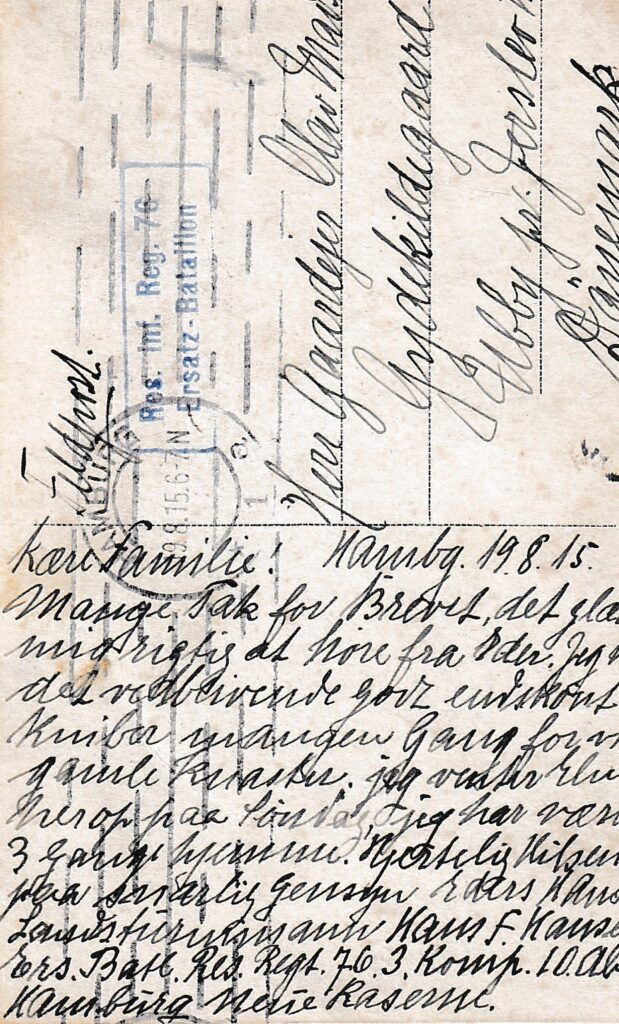 Feldpost.
Res. Inf. Reg. 76
Ersatz-Bataillon
HAMBURG
19.8.15.6-7N
1
Herr Gaardejer
Gydekildegaard
Ubby pr. Jerslev
Dänemark
Kære Familie! Hambg. 19.8.15.
Mange Tak for Brevet, det glæ
mig rigtig at høre fra Eder. Jeg
det vedblivende godt endskønt
kniber mangen Gang for
gamle Knaster. jeg venter
herop paa Søndag, jeg har vær
3 Gange hjemme. Hjertelig Hilsen
paa snarlig Gensyn Eders Hans
Landsturmmann Hans F. Hanse
Ers. Batl. Res. Regt. 76. 3. Komp. 10. Ab
Hamburg Neue Kaserne.